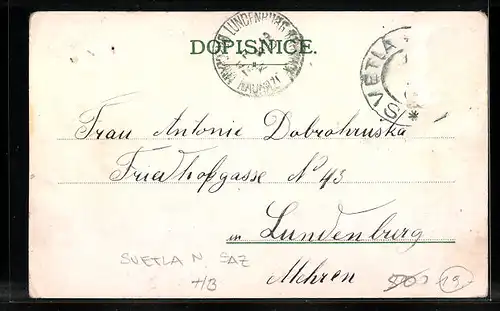 DOPISNICE.
LUNDENBURG
SVETLA
Frau Antonie Dobrohruska
Friedhofgasse No 43
in Lundenburg
Mehren
SVETLA N SAZ
HB
19